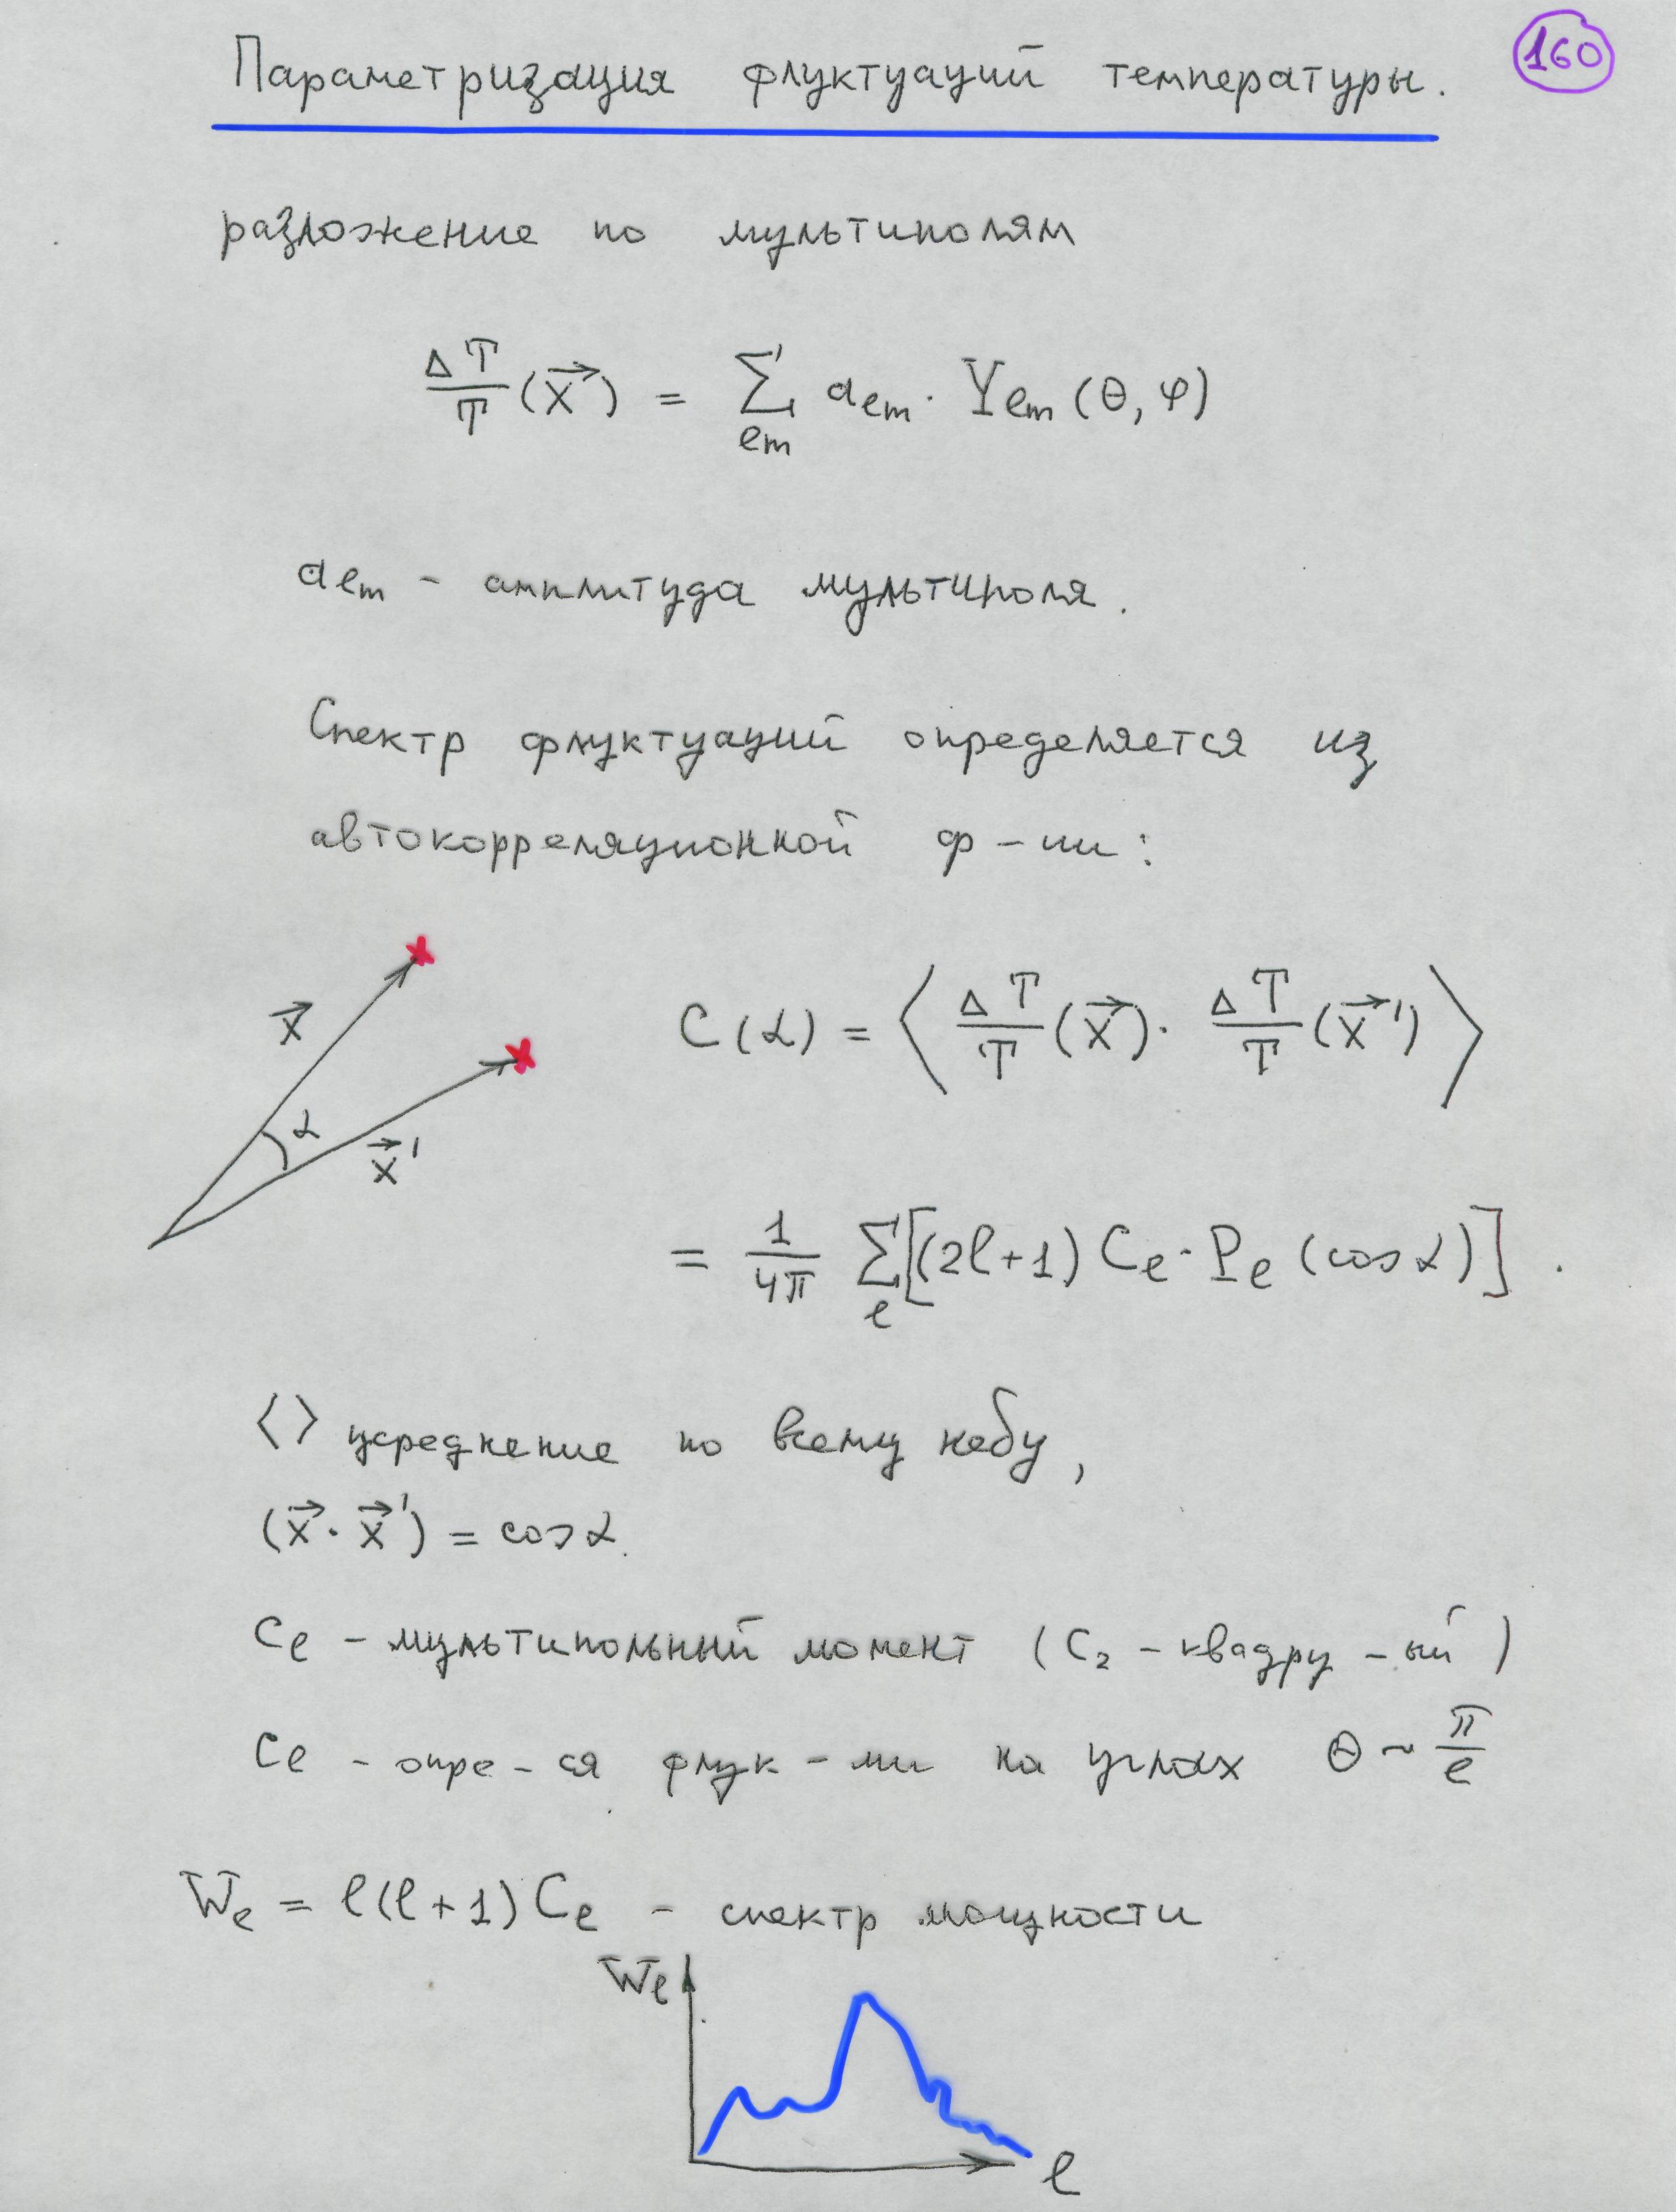 Параметризация флуктуаций температуры.
160
разложение по мультиполям
ΔT/T (x⃗) = Σ_{ℓm} a_{ℓm} · Y_{ℓm} (θ, φ)
a_{ℓm} - амплитуда мультиполя.
Спектр флуктуаций определяется из
автокорреляционной ф-ии:
x⃗
α
x⃗'
C(α) = ⟨ ΔT/T (x⃗) · ΔT/T (x⃗') ⟩
= 1/4π Σ_ℓ [(2ℓ+1) C_ℓ · P_ℓ (cos α)] .
⟨ ⟩ усреднение по всему небу,
(x⃗ · x⃗') = cos α.
C_ℓ - мультипольный момент (C₂ - квадру-ый)
C_ℓ - опре-ся флук-ми на углах θ ~ π/ℓ
W_ℓ = ℓ(ℓ+1) C_ℓ - спектр мощности
W_ℓ
ℓ